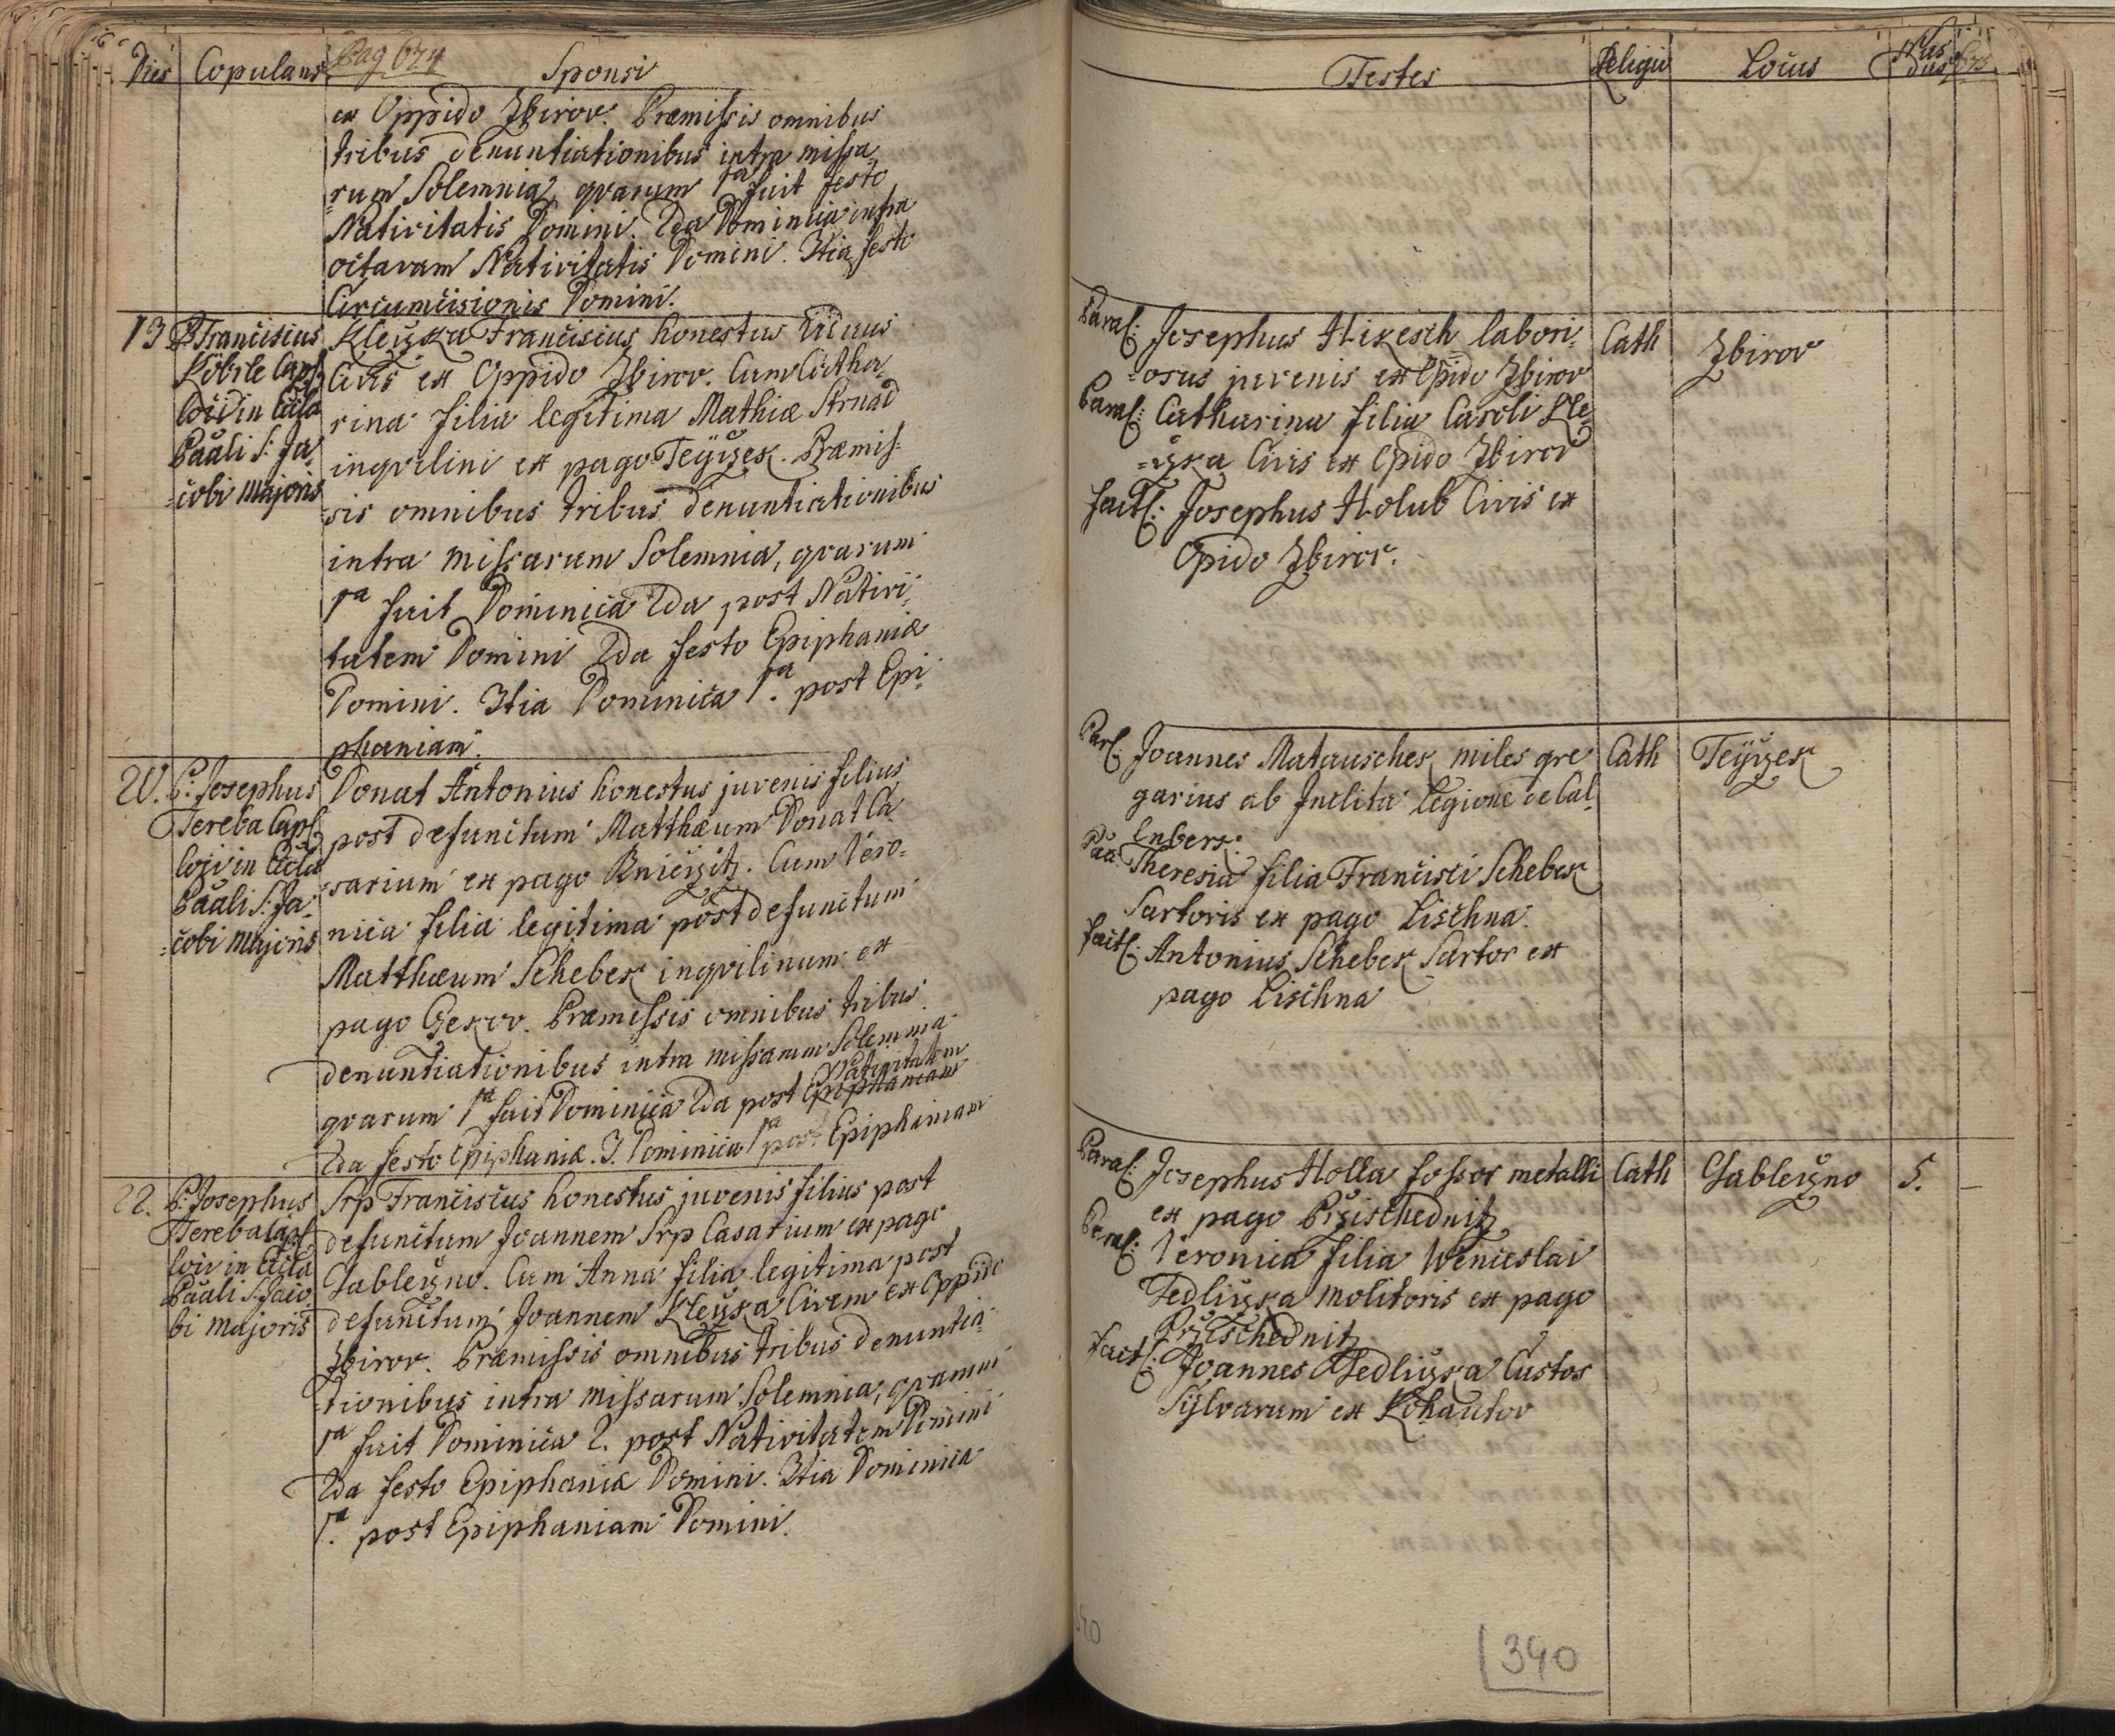 Dies Copulans Pag 674 Sponsi
ex Oppido Zbirov. Præmissis omnibus
tribus denuntiationibus intra missa-
rum Solemnia, qvarum 1ma fuit festo
Nativitatis Domini. 2da Dominica infra
octavam Nativitatis Domini. 3tia festo
Circumcisionis Domini.
13 P. Franciscus
Köbrle Capl:
loci in Ecla
Paāli S: Ja-
=cobi Majoris
Kleyzka Franciscus honestus Viduus
Civis ex Oppido Zbirov. Cum Catha-
rina filia legitima Mathiæ Strnad
inqvilini ex pago Teyčzek. Præmis-
sis omnibus tribus denuntiationibus
intra missarum Solemnia, qvarum
1ma fuit Dominica 2da post Nativi-
tatem Domini 2da festo Epiphaniæ
Domini. 3tia Dominica 1ma post Epi-
phaniam.
20. P: Josephus
Tereba Capl:
loci in Ecla
Paāli S: Ja-
=cobi Majoris
Donat Antonius honestus juvenis filius
post defunctum Matthæum Donat Ca
sarium ex pago Kničzitz. Cum Vero-
nica filia legitima post defunctum
Matthæum Scheber inqvilinum ex
pago Czekov. Præmissis omnibus tribus
denuntiationibus intra missarum Solemnia
Nativitatem
qvarum 1ma fuit Dominica 2da post Epiphaniam
2da festo Epiphaniæ. 3. Dominica 1ma post Epiphaniam
22. P: Josephus
Tereba Capl:
loci in Ecla
Paāli S: Jaco
bi Majoris
Srp Franciscus honestus juvenis filius post
defunctum Joannem Srp Casarium ex pago
Jableczno. Cum Anna filia legitima post
defunctum Joannem Kleyzka Civem ex Oppido
Zbirov. Præmissis omnibus tribus denuntia-
tionibus intra missarum Solemnia, qvarum
1ma fuit Dominica 2. post Nativitatem Domini
2da festo Epiphaniæ Domini. 3tia Dominica
1ma post Epiphaniam Domini.
Testes Religio Locus Nus dus 675
Paral: Josephus Hikesch labori-
=osus juvenis ex Opido Zbirov
Paral: Catharina filia Caroli Kle-
=yzka Civis ex Opido Zbirov
facil: Josephus Holub Civis ex
Opido Zbirov.
Cath Zbirov
Parl: Joannes Matauschek miles gre
garius ab Inclita Legione de Cal-
lnberg.
Paa: Theresia filia Francisci Scheber
Sartoris ex pago Lischna.
facil: Antonius Scheber Sartor ex
pago Lischna
Cath Teyczek
Paral: Josephus Holla fossor metalli
ex pago Przischednitz
Paral: Veronica filia Wenceslai
Jedliczka molitoris ex pago
Przischednitz
facil: Joannes Jedliczka Custos
Sylvarum ex Kohautov
Cath Jableczno 5.
340